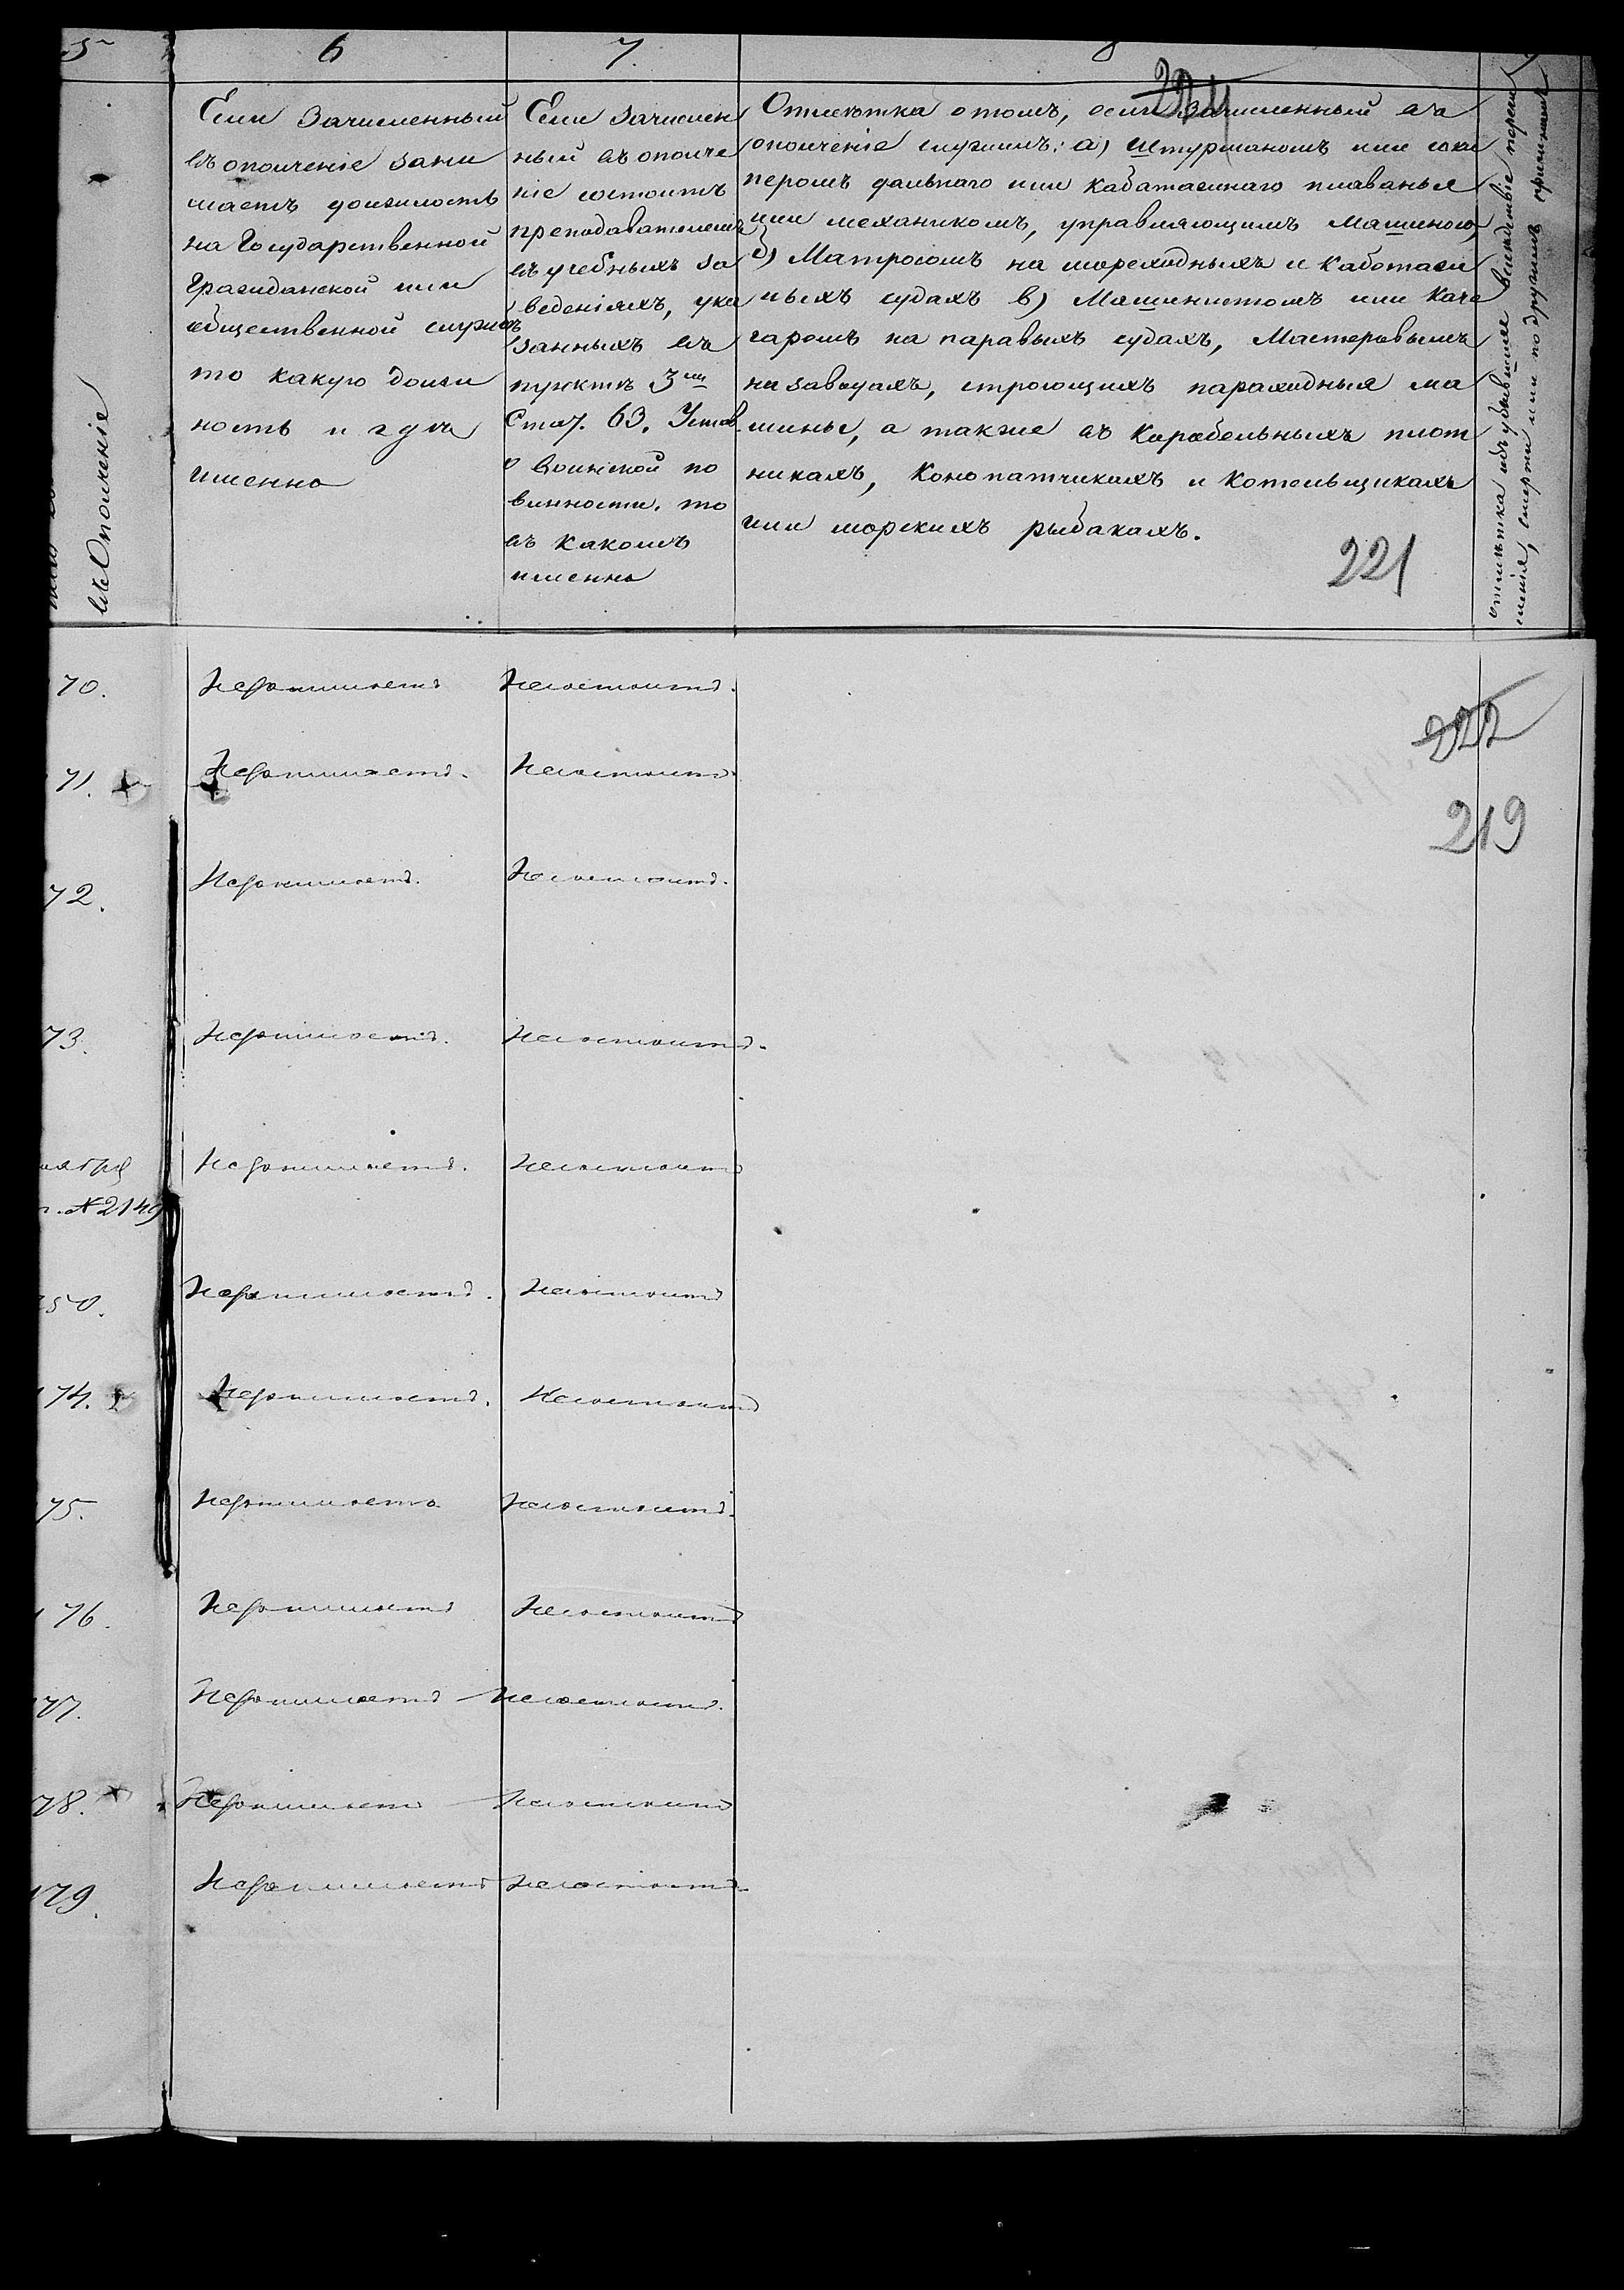 5
6
7.
8
224
въ Ополченіе
Если зачисленный
въ ополченіе зани
маетъ должность
на Государственной
Гражданской или
общественной службѣ
то какую долж
ность и гдѣ
именно
Если зачислен
ный въ ополче
ніе состоитъ
преподавателемъ
въ учебныхъ за
веденіяхъ, ука
занныхъ въ
пунктѣ 3мъ
Стат. 63. Устав.
о воинской по
винности. то
въ какомъ
именно
Отмѣтка о томъ, если зачисленный въ
ополченіе служилъ: а) штурманомъ или шки
перомъ дальнаго или кабатажнаго плаванья
или механикомъ, управляющимъ машиною,
б) Матросомъ на мореходныхъ и каботаж
ныхъ судахъ в) Машинистомъ или коче
гаромъ на паравыхъ судахъ, Мастеровымъ
на заводахъ, строющихъ параходныя ма
шины, а также въ корабельныхъ плот
никахъ, конопатчикахъ и котельщикахъ
или морскихъ рыбакахъ.
221
отмѣтка объ убывшихъ вслѣдствіе перечи
сленія, смерти или по другимъ причинамъ
70. Незанимаетъ Несостоитъ.
222
71. Незанимаетъ. Несостоитъ
219
72. Незанимаетъ. Несостоитъ.
73. Незанимаетъ. Несостоитъ.
ноября Незанимаетъ. Несостоитъ
г. №2149
50. Незанимаетъ. Несостоитъ
174. Незанимаетъ. Несостоитъ
75. Незанимаетъ Несостоитъ.
176. Незанимаетъ Несостоитъ
177. Незанимаетъ Несостоитъ.
78. Незанимаетъ Несостоитъ
179. Незанимаетъ Несостоитъ.